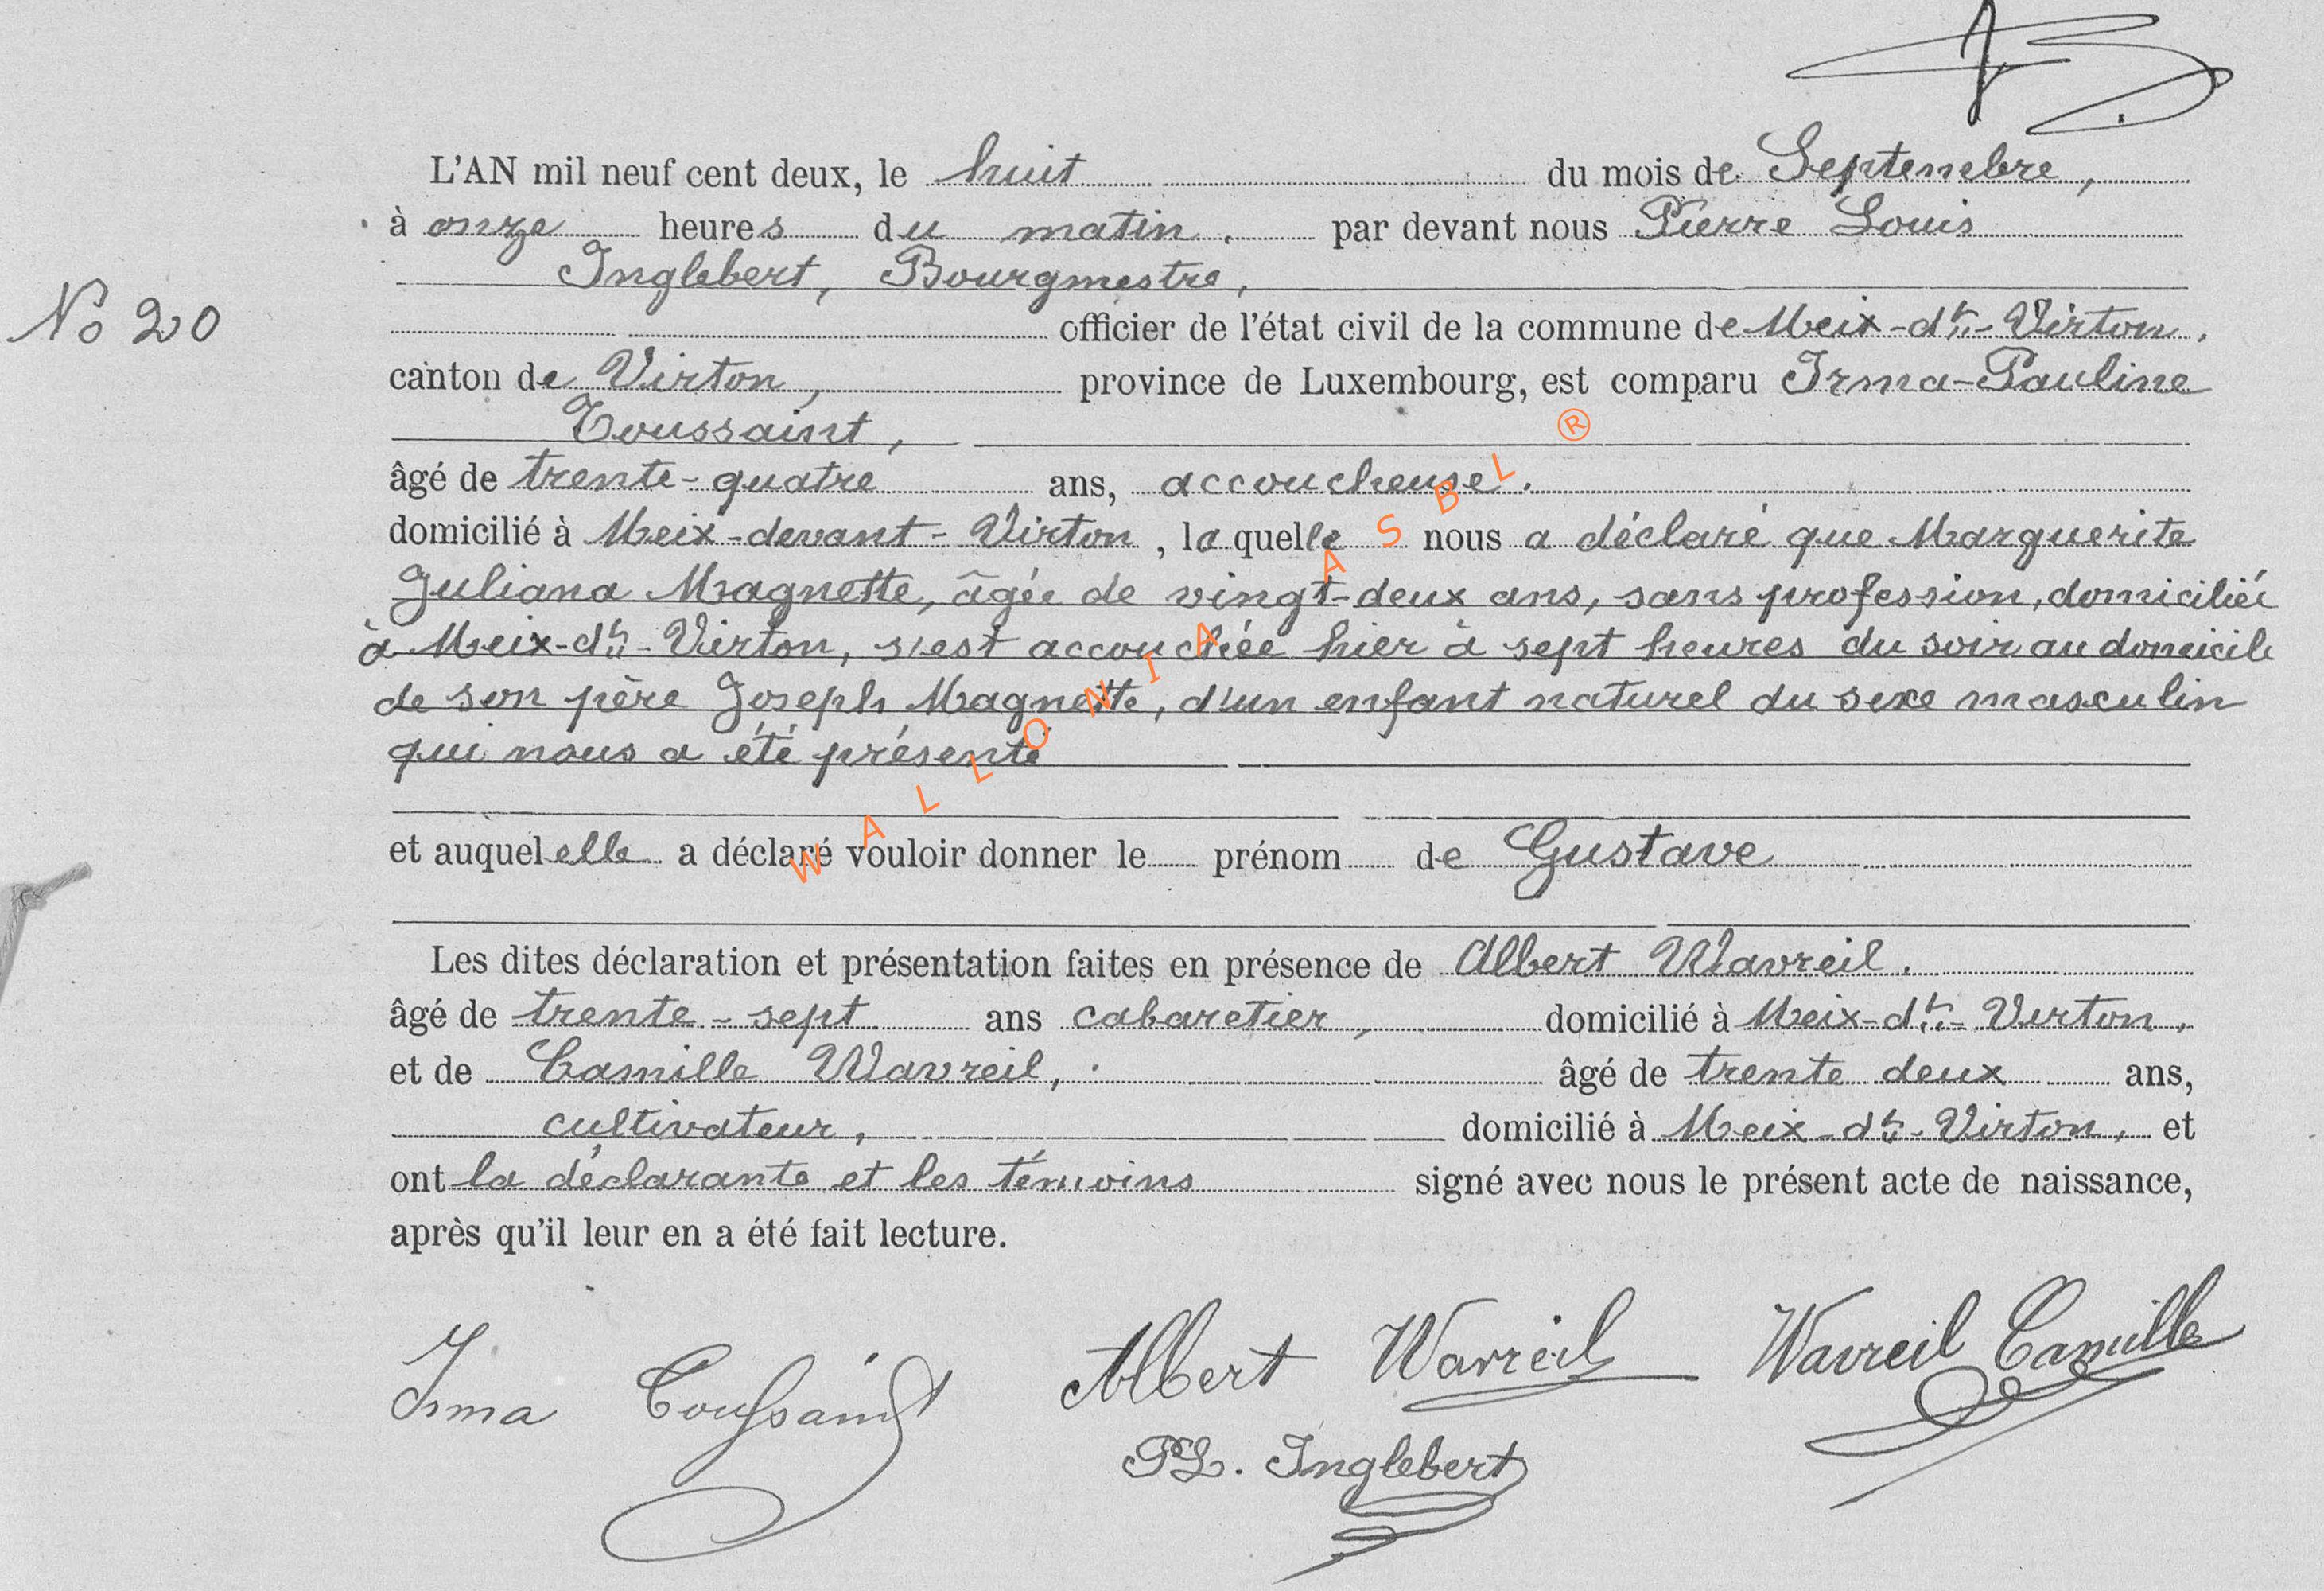 L'AN mil neuf cent deux, le huit du mois de Septembre,
à onze heures du matin, par devant nous Pierre Louis
Inglebert, Bourgmestre,
No 20
officier de l'état civil de la commune de Meix-dt-Virton,
canton de Virton, province de Luxembourg, est comparu Irma-Pauline
Toussaint,
âgé de trente-quatre ans, accoucheuse,
domicilié à Meix-devant-Virton, laquelle nous a déclaré que Marguerite
Juliana Magnette, âgée de vingt-deux ans, sans profession, domiciliée
à Meix-dt-Virton, s'est accouchée hier à sept heures du soir au domicile
de son père Joseph Magnette, d'un enfant naturel du sexe masculin
qui nous a été présenté
et auquel elle a déclaré vouloir donner le prénom de Gustave
Les dites déclaration et présentation faites en présence de Albert Wavreil,
âgé de trente-sept ans cabaretier, domicilié à Meix-dt-Virton,
et de Camille Wavreil, âgé de trente deux ans,
cultivateur, domicilié à Meix-dt-Virton, et
ont la déclarante et les témoins signé avec nous le présent acte de naissance,
après qu'il leur en a été fait lecture.
Irma Toussaint Albert Wavreil Wavreil Camille
PL. Inglebert
WALLONIA ASBL ®